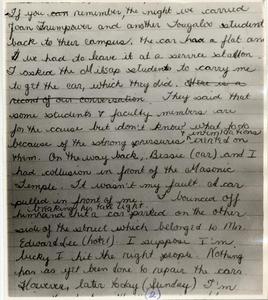 If you can remember, the night we carried
Joan Trumpower and another Tougaloo student
back to their campus, the car had a flat and
we had to leave it at a service station.
I asked the Milsap students to carry me
to get the car, which they did. Here is a
record of our conversation. They said that
some students & faculty members are
for the cause but don't know what
because of the strong pressures & exerted on
them. On the way back, Bessie (car) and I
had collision in front of the Masonic
Temple. It wasn't my fault. A car
pulled in front of me. I bounced off
breaking his tail light.
him and hit a car parked on the other
side of the street which belonged to Mr.
Edward Lee (hotel). I suppose I'm
lucky I hit the right people. Nothing
has as yet been done to repair the cars
However, later today (Sunday) I'm
2